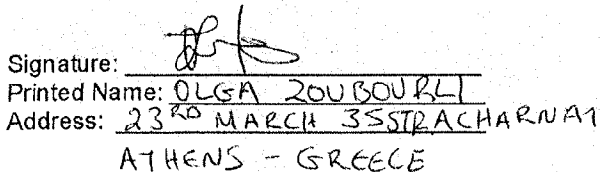 Signature:
Printed Name: OLGA ZOUBOURLI
Address: 23RD MARCH 35STR ACHARNAI
ATHENS - GREECE